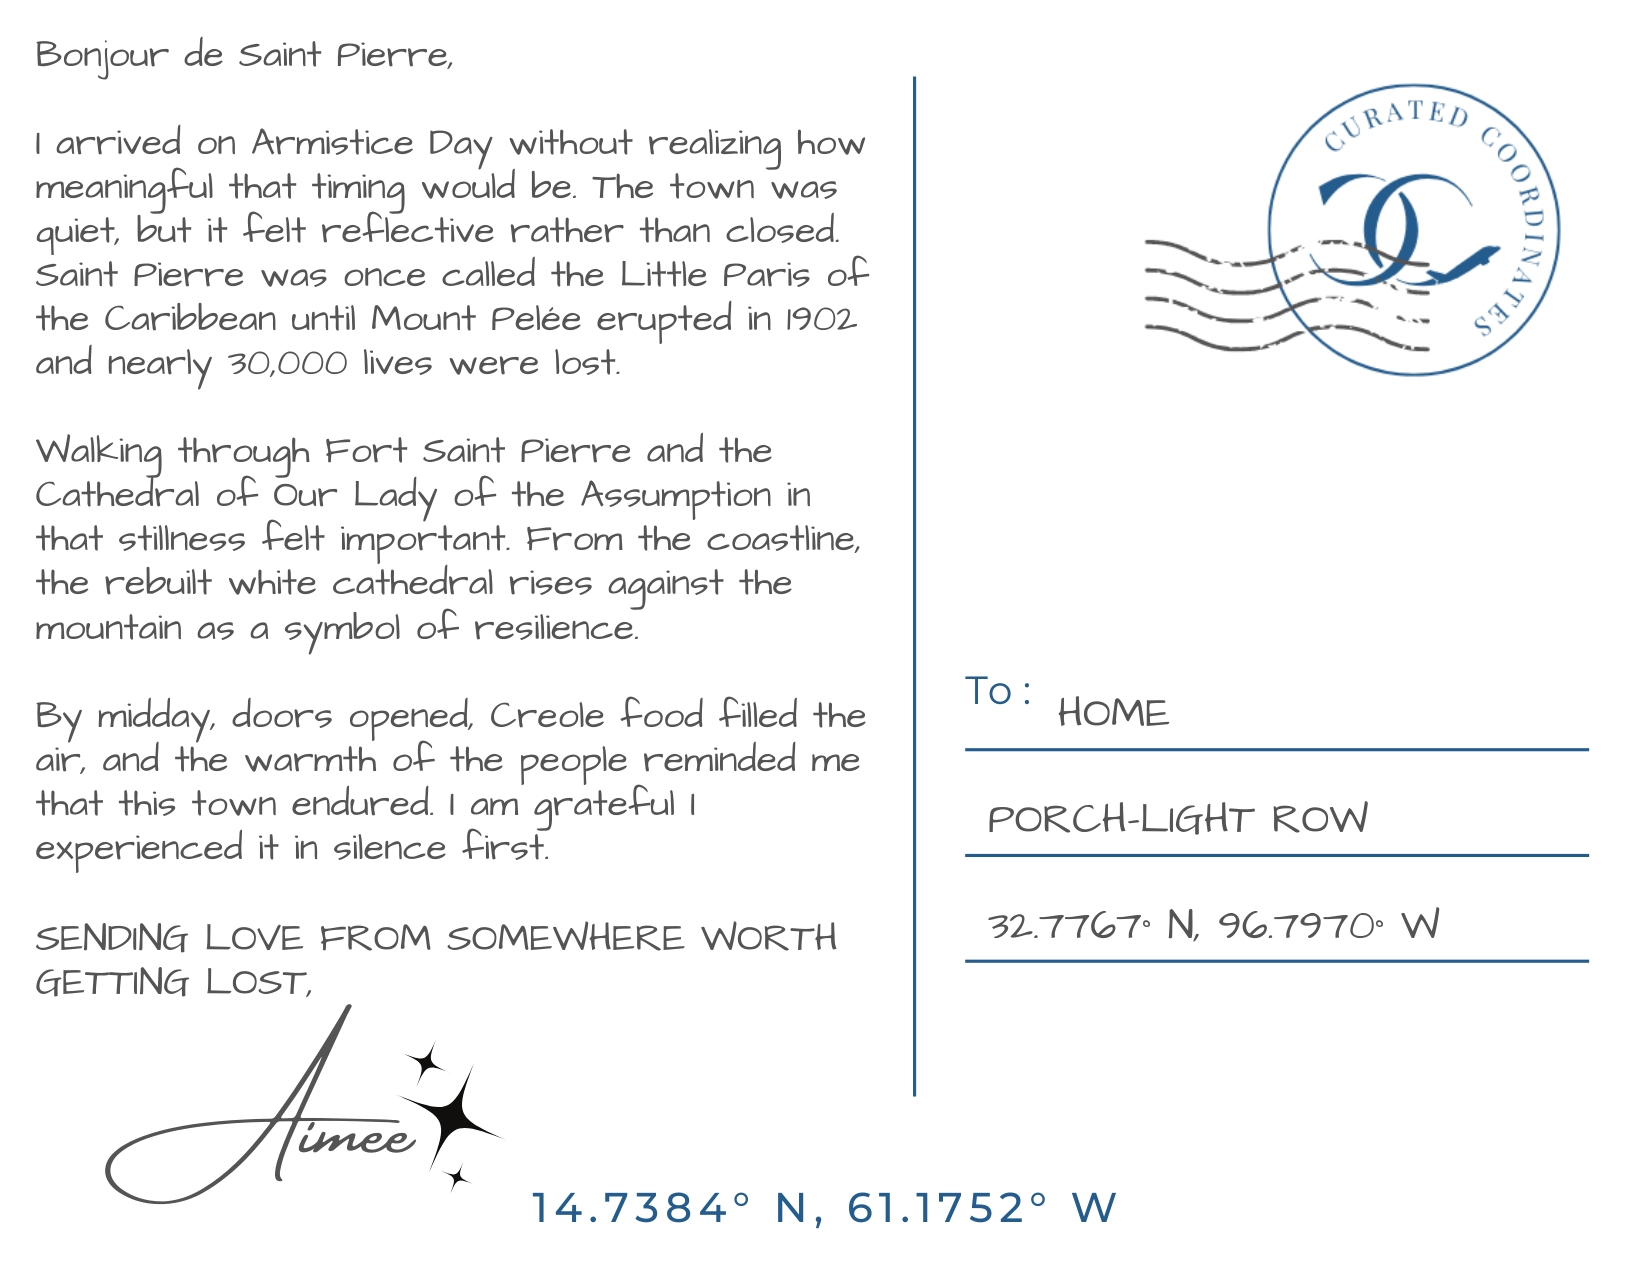 Bonjour de Saint Pierre,
I arrived on Armistice Day without realizing how
meaningful that timing would be. The town was
quiet, but it felt reflective rather than closed.
Saint Pierre was once called the Little Paris of
the Caribbean until Mount Pelée erupted in 1902
and nearly 30,000 lives were lost.
Walking through Fort Saint Pierre and the
Cathedral of Our Lady of the Assumption in
that stillness felt important. From the coastline,
the rebuilt white cathedral rises against the
mountain as a symbol of resilience.
By midday, doors opened, Creole food filled the
air, and the warmth of the people reminded me
that this town endured. I am grateful I
experienced it in silence first.
SENDING LOVE FROM SOMEWHERE WORTH
GETTING LOST,
Aimee
CURATED COORDINATES
CC
To: HOME
PORCH-LIGHT ROW
32.7767° N, 96.7970° W
14.7384° N, 61.1752° W